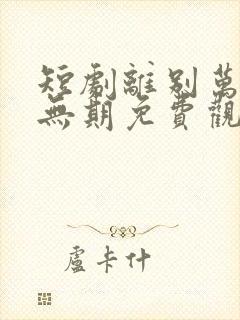 短劇離別萬
無期免費觀
盧卡什